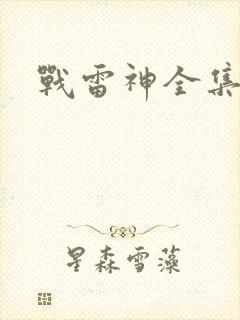 戰雷神全集
星森雪藻